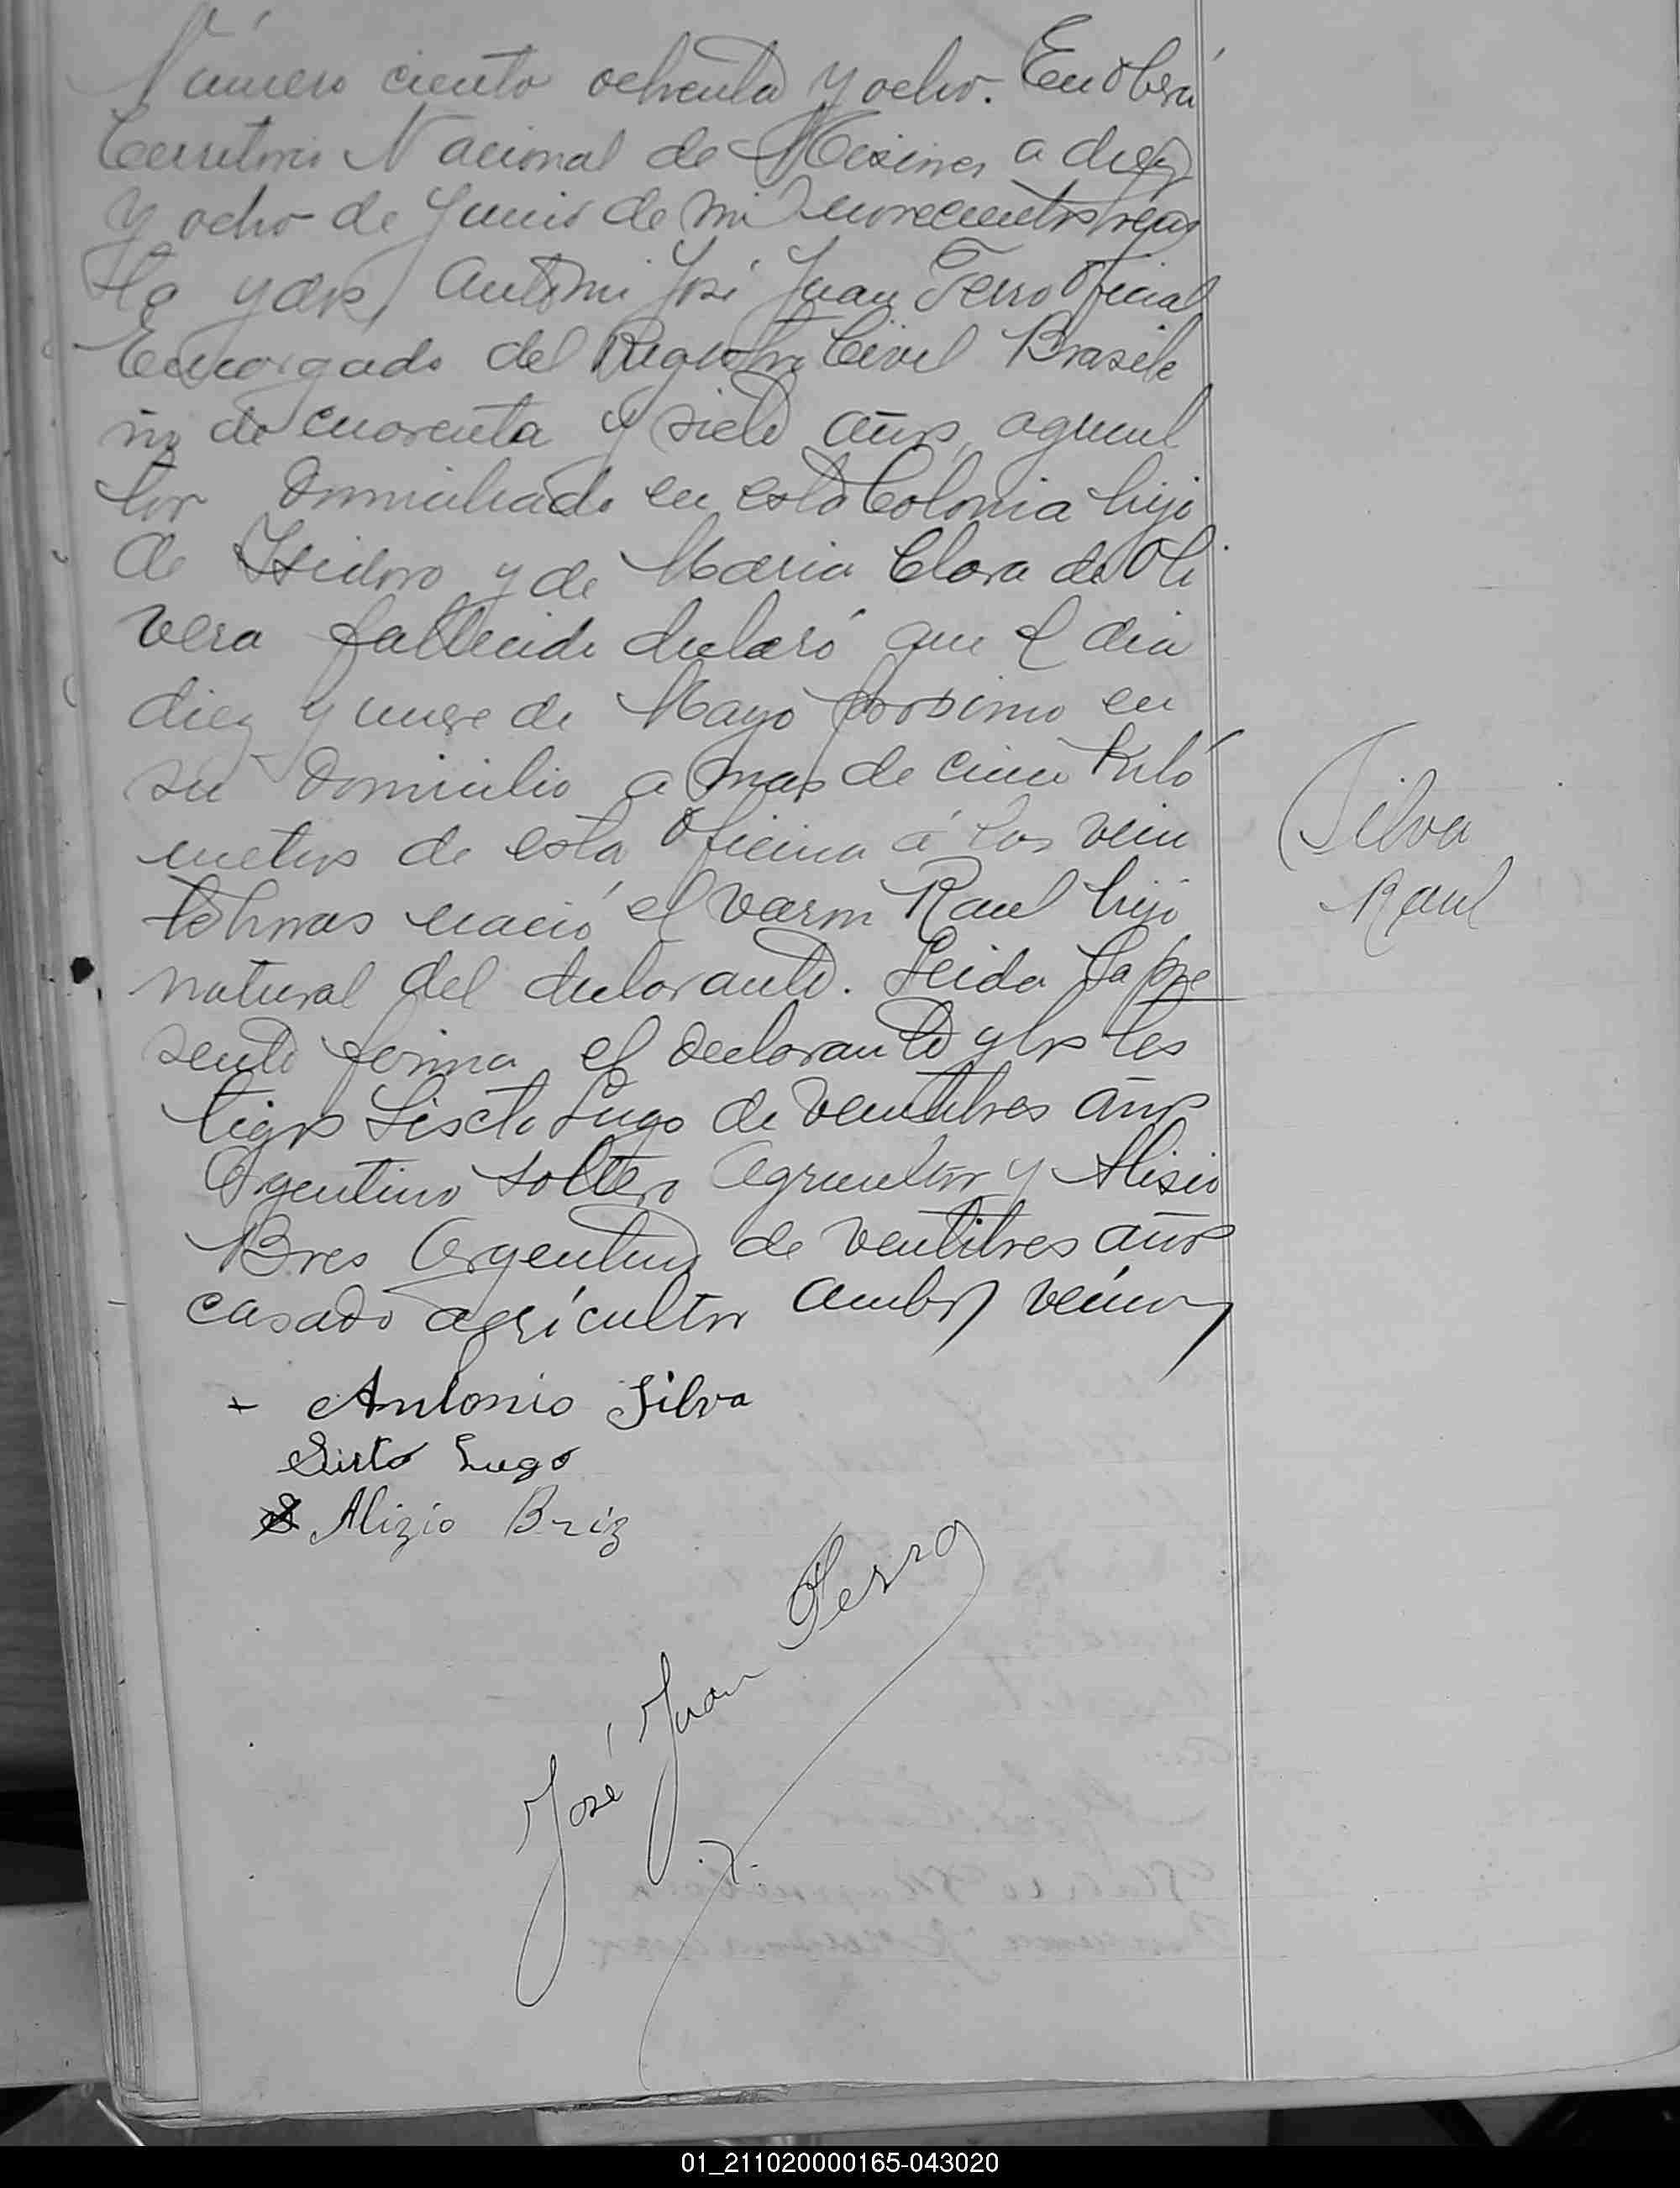 Número ciento ochenta y ocho. En Oberá
Territorio Nacional de Misiones a diez
y ocho de Junio de mil novecientos trein
ta y dos, Ante mi José Juan Ferro Oficial
Encargado del Registro Civil Brasile
ño de cuarenta y siete años, agricul
tor domiciliado en esta Colonia hijo
de Isidoro y de Maria Clara de Oli
vera fallecido declaró que el dia
diez y nueve de Mayo en
su domicilio a mas de cinco Kiló
metros de esta Oficina á las vein
te horas nació el varon Raul hijo
natural del declarante. Leida la pre
sente firma el declarante y los tes
tigos Sixto Lugo de ventitres años
Argentino soltero agricultor y Alisio
Bres Argentino de ventitres años
casado agricultor ambos vecinos
Silva
Raul
+ Antonio Silva
Sisto Lugo
Alizio Briz
José Juan Ferro
01_211020000165-043020